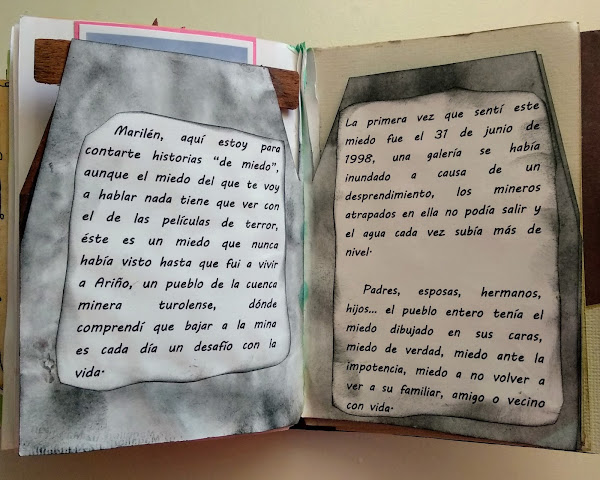 Marilén, aquí estoy para
contarte historias "de miedo",
aunque el miedo del que te voy
a hablar nada tiene que ver con
el de las películas de terror,
éste es un miedo que nunca
había visto hasta que fui a vivir
a Ariño, un pueblo de la cuenca
minera turolense, dónde
comprendí que bajar a la mina
es cada día un desafío con la
vida.
La primera vez que sentí este
miedo fue el 31 de junio de
1998, una galería se había
inundado a causa de un
desprendimiento, los mineros
atrapados en ella no podía salir y
el agua cada vez subía más de
nivel.
Padres, esposas, hermanos,
hijos... el pueblo entero tenía el
miedo dibujado en sus caras,
miedo de verdad, miedo ante la
impotencia, miedo a no volver a
ver a su familiar, amigo o vecino
con vida.